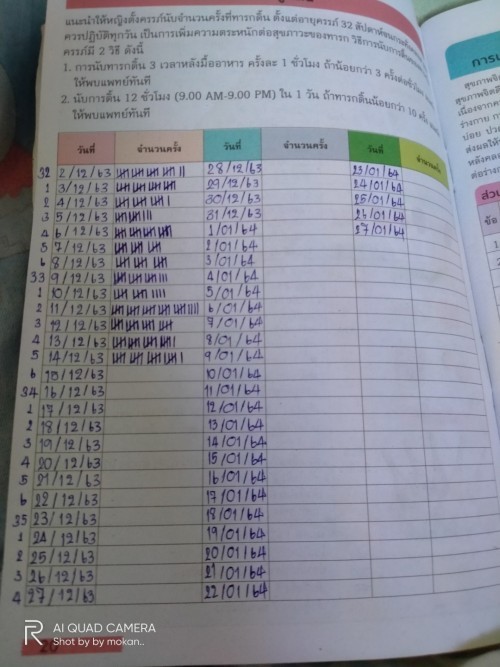 แนะนำให้หญิงตั้งครรภ์นับจำนวนครั้งที่ทารกดิ้น ตั้งแต่อายุครรภ์ 32 สัปดาห์
ควรปฏิบัติทุกวัน เป็นการเพิ่มความตระหนักต่อสุขภาวะของทารก วิธีการนับ
ครรภ์มี 2 วิธี ดังนี้
1. การนับทารกดิ้น 3 เวลาหลังมื้ออาหาร ครั้งละ 1 ชั่วโมง ถ้าน้อยกว่า 3 ครั้งต่อชั่วโมง
ให้พบแพทย์ทันที
2. นับการดิ้น 12 ชั่วโมง (9.00 AM-9.00 PM) ใน 1 วัน ถ้าทารกดิ้นน้อยกว่า 10 ครั้ง
ให้พบแพทย์ทันที
วันที่ จำนวนครั้ง วันที่ จำนวนครั้ง วันที่ จำนวนครั้ง
32 2/12/63 28/12/63 23/01/64
1 3/12/63 29/12/63 24/01/64
2 4/12/63 30/12/63 25/01/64
3 5/12/63 31/12/63 26/01/64
4 6/12/63 1/01/64 27/01/64
5 7/12/63 2/01/64
6 8/12/63 3/01/64
33 9/12/63 4/01/64
1 10/12/63 5/01/64
2 11/12/63 6/01/64
3 12/12/63 7/01/64
4 13/12/63 8/01/64
5 14/12/63 9/01/64
6 15/12/63 10/01/64
34 16/12/63 11/01/64
1 17/12/63 12/01/64
2 18/12/63 13/01/64
3 19/12/63 14/01/64
4 20/12/63 15/01/64
5 21/12/63 16/01/64
6 22/12/63 17/01/64
35 23/12/63 18/01/64
1 24/12/63 19/01/64
2 25/12/63 20/01/64
3 26/12/63 21/01/64
4 27/12/63 22/01/64
สุขภาพจิต
เนื่องจาก
ร่างกาย
ส่งผลให้
หลังคลอด
ข้อ
AI QUAD CAMERA
Shot by by mokan..